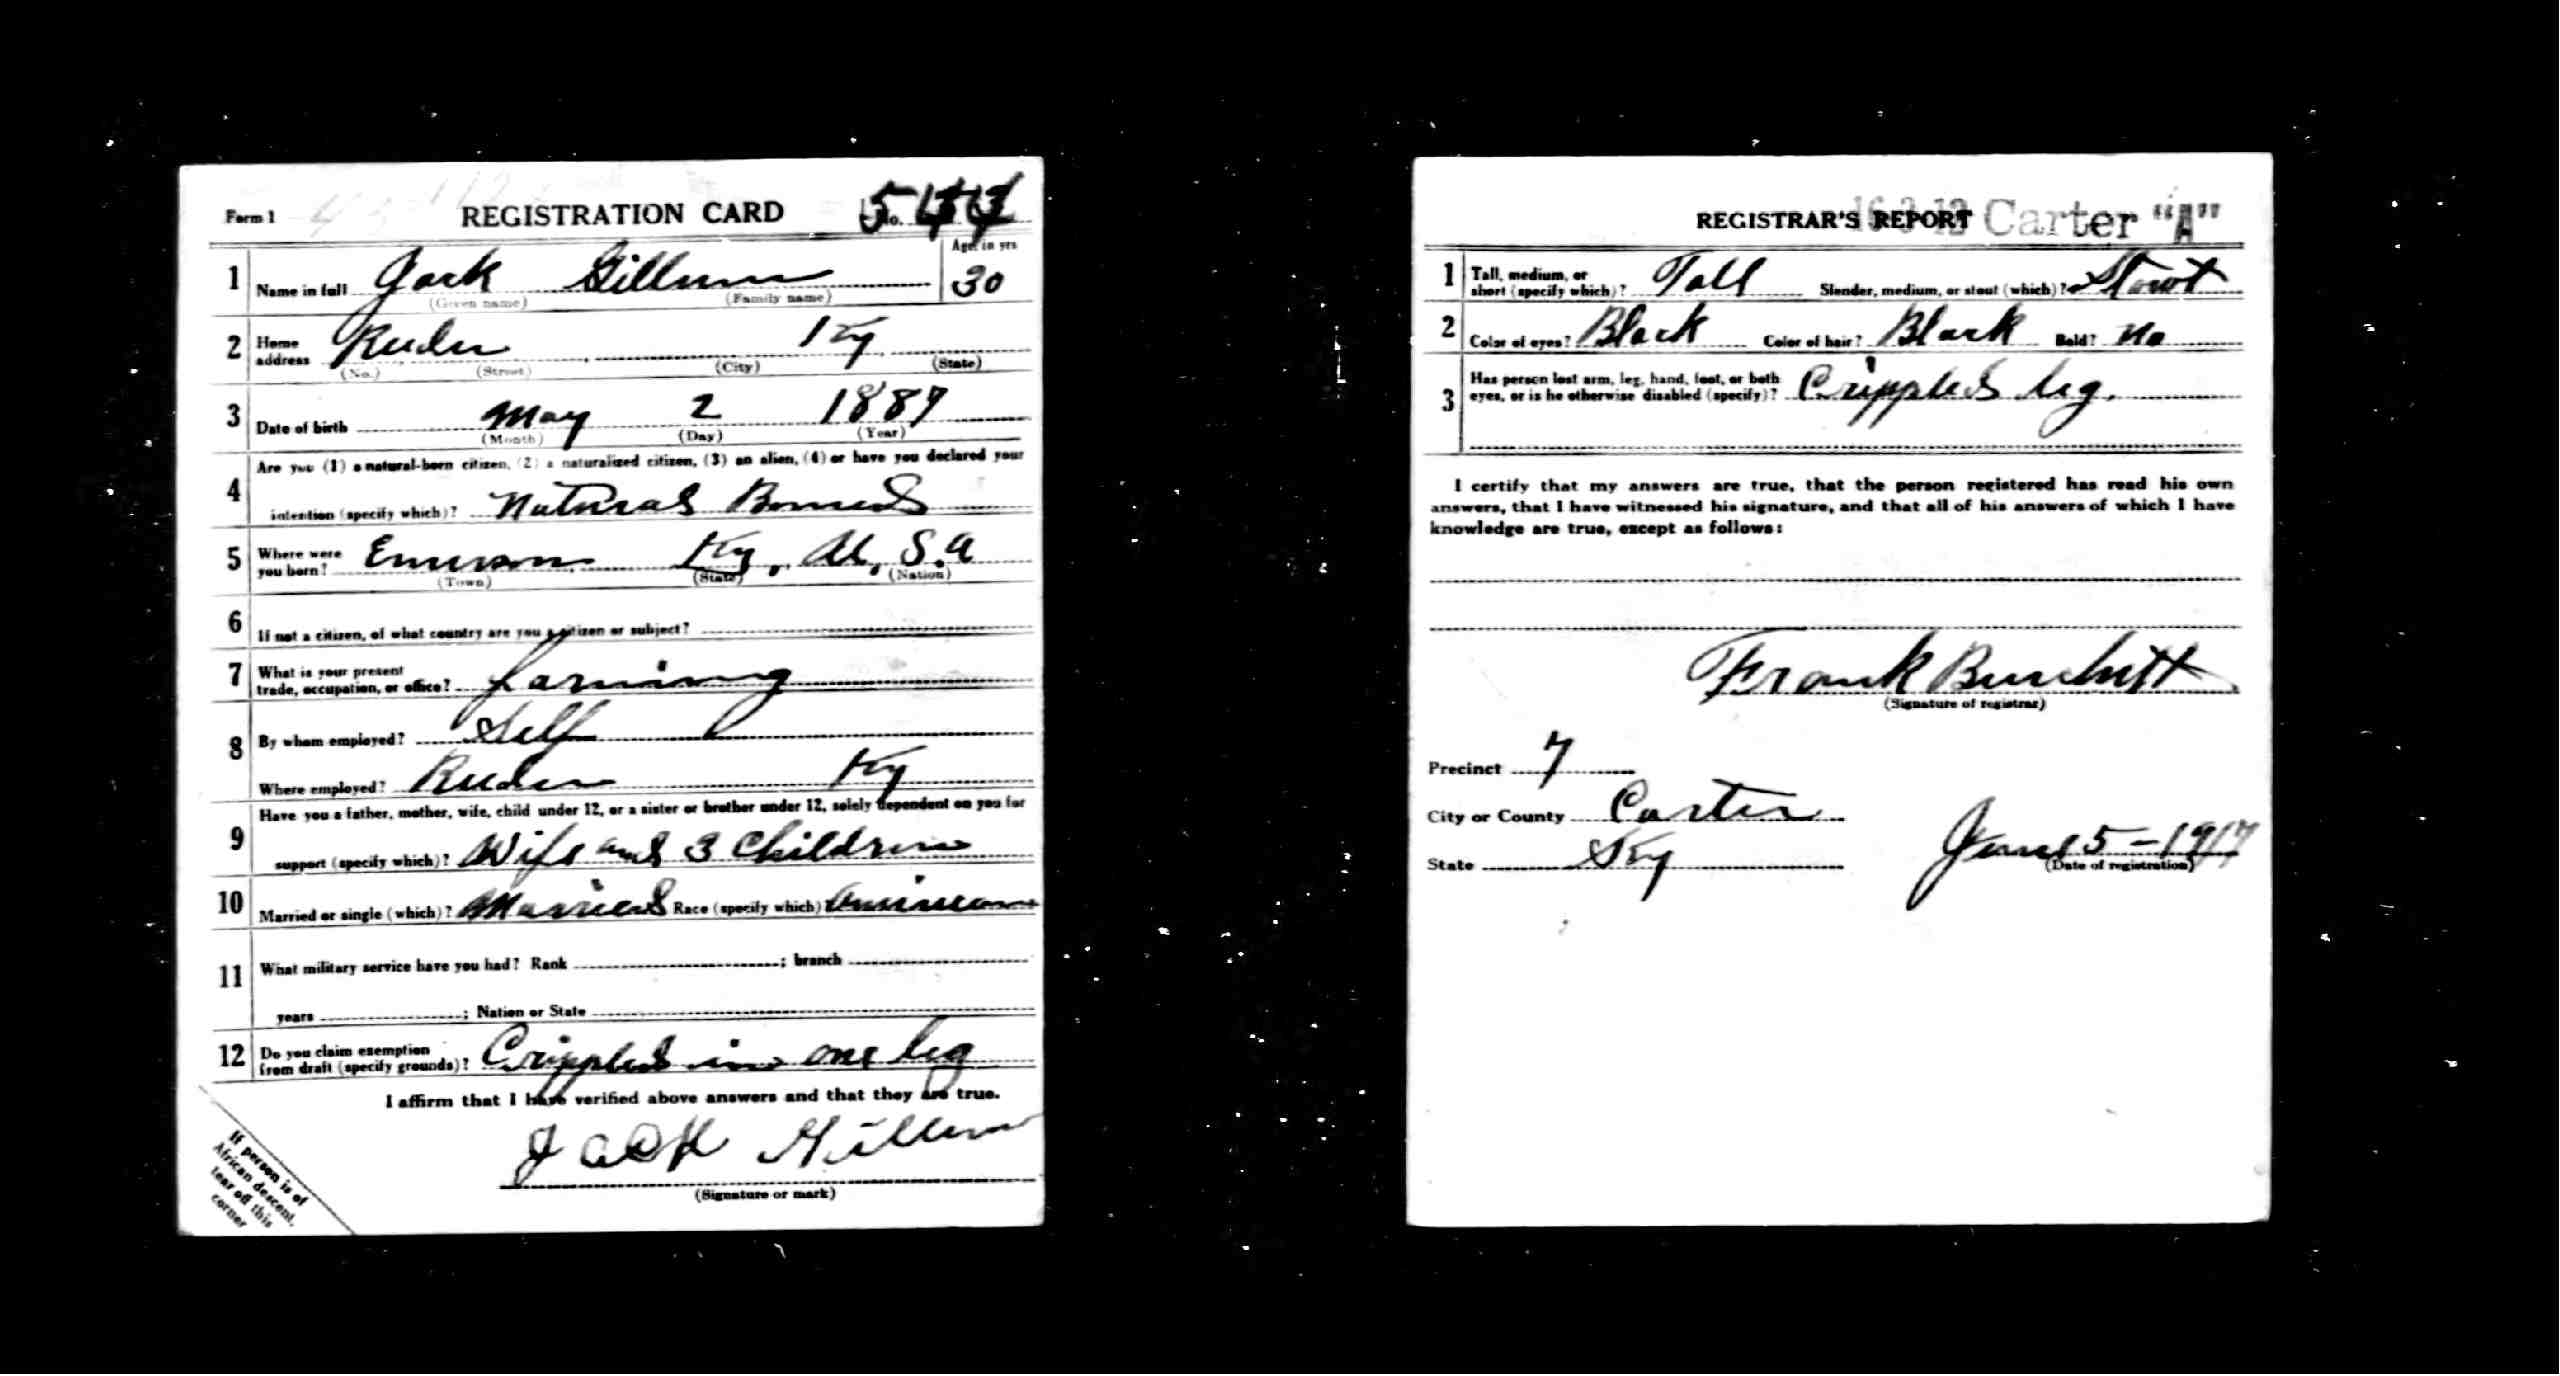 Form 1 REGISTRATION CARD No.
Age, in yrs
1 Name in full Jack Gillum 30
(Given name) (Family name)
2 Home address Ky
(No.) (Street) (City) (State)
3 Date of birth May 2 1887
(Month) (Day) (Year)
4 Are you (1) a natural-born citizen, (2) a naturalized citizen, (3) an alien, (4) or have you declared your
intention (specify which)? Natural Borned
5 Where were you born? Emerson Ky, U.S.A
(Town) (State) (Nation)
6 If not a citizen, of what country are you a citizen or subject?
7 What is your present trade, occupation, or office? farming
8 By whom employed? Self
Where employed? Ky
9 Have you a father, mother, wife, child under 12, or a sister or brother under 12, solely dependent on you for
support (specify which)? Wife and 3 Children
10 Married or single (which)? Married Race (specify which)? American
11 What military service have you had? Rank ; branch
years ; Nation or State
12 Do you claim exemption from draft (specify grounds)? Crippled in one leg
I affirm that I have verified above answers and that they are true.
Jack Gillum
(Signature or mark)
If person is of
African descent,
tear off this
corner
REGISTRAR'S REPORT Carter "A"
1 Tall, medium, or short (specify which)? Tall Slender, medium, or stout (which)? Stout
2 Color of eyes? Black Color of hair? Black Bald? No
3 Has person lost arm, leg, hand, foot, or both eyes, or is he otherwise disabled (specify)? Crippled leg.
I certify that my answers are true, that the person registered has read his own
answers, that I have witnessed his signature, and that all of his answers of which I have
knowledge are true, except as follows:
Frank Burchett
(Signature of registrar)
Precinct 7
City or County Carter
State Ky
June 5-1917
(Date of registration)